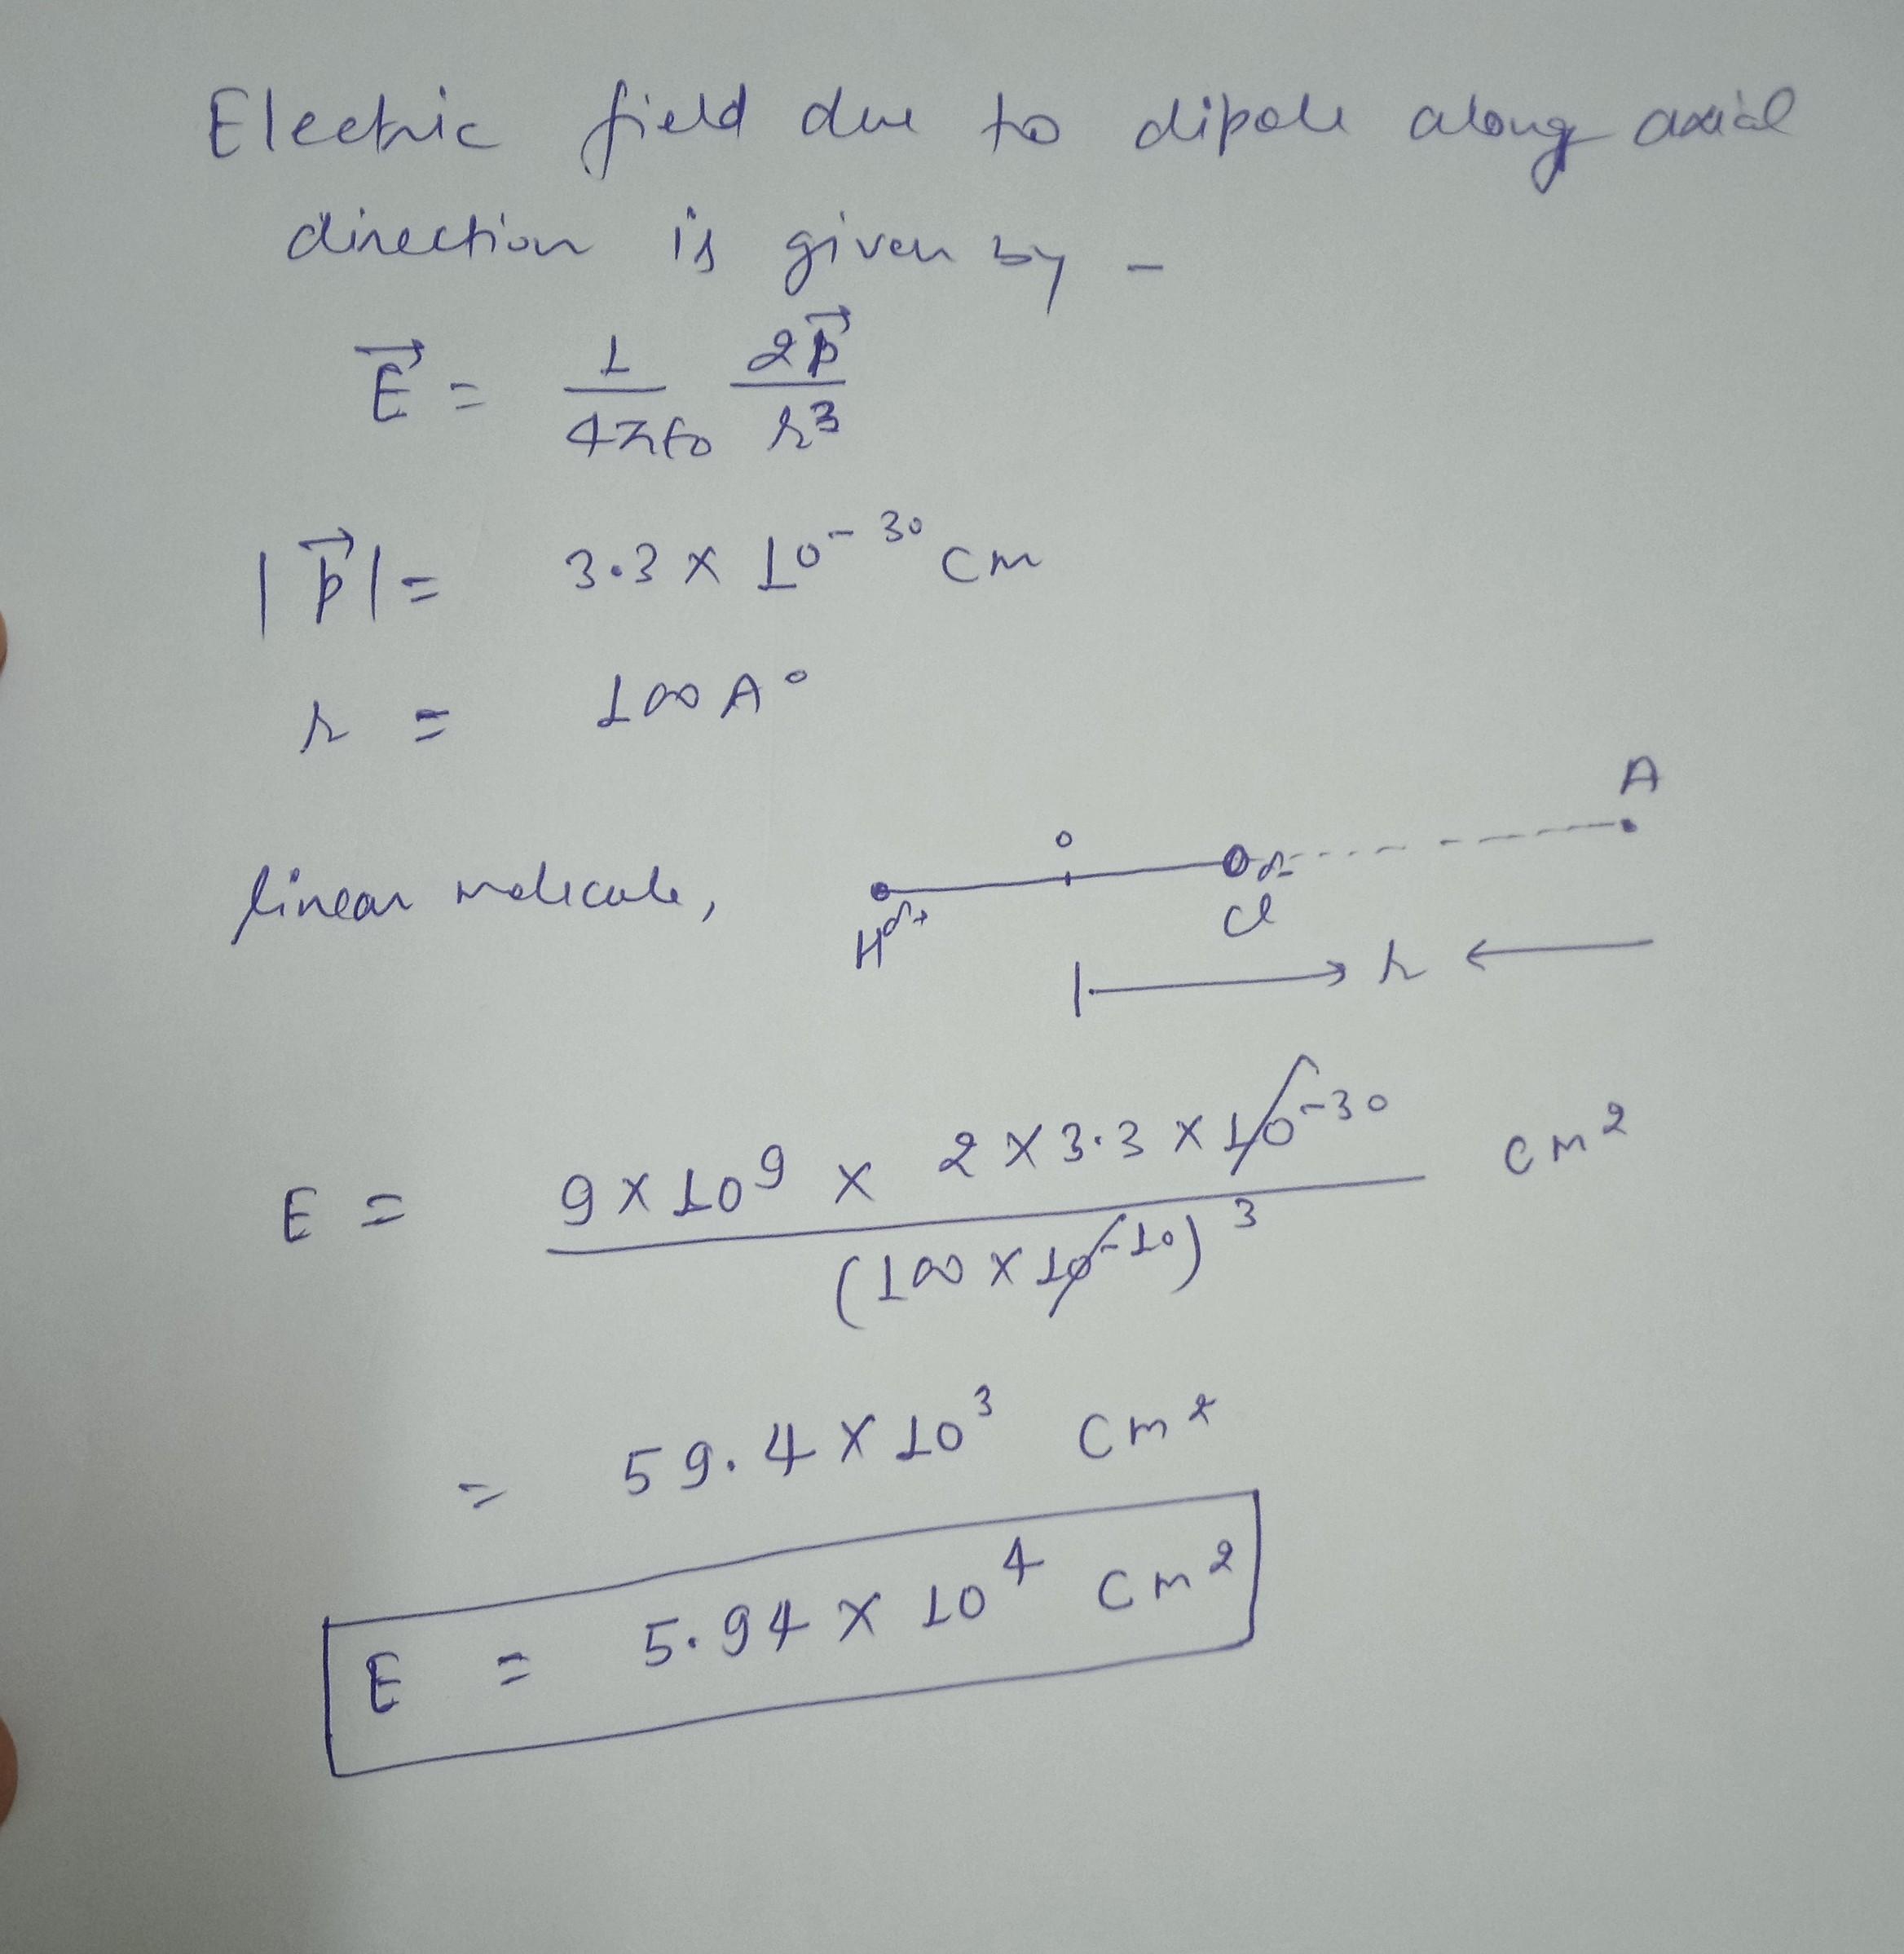 Electric field due to dipole along axial
direction is given by -
E⃗ = 1/4πϵ0 2p⃗/r3
|p⃗| = 3.3 × 10-30 cm
r = 100 A°
A
linear molecule, Hδ+ o δ- Cl
r
E = 9×109 × 2×3.3×10-30/(100×10-10)3 cm2
= 59.4 × 103 cm2
E = 5.94 × 104 cm2